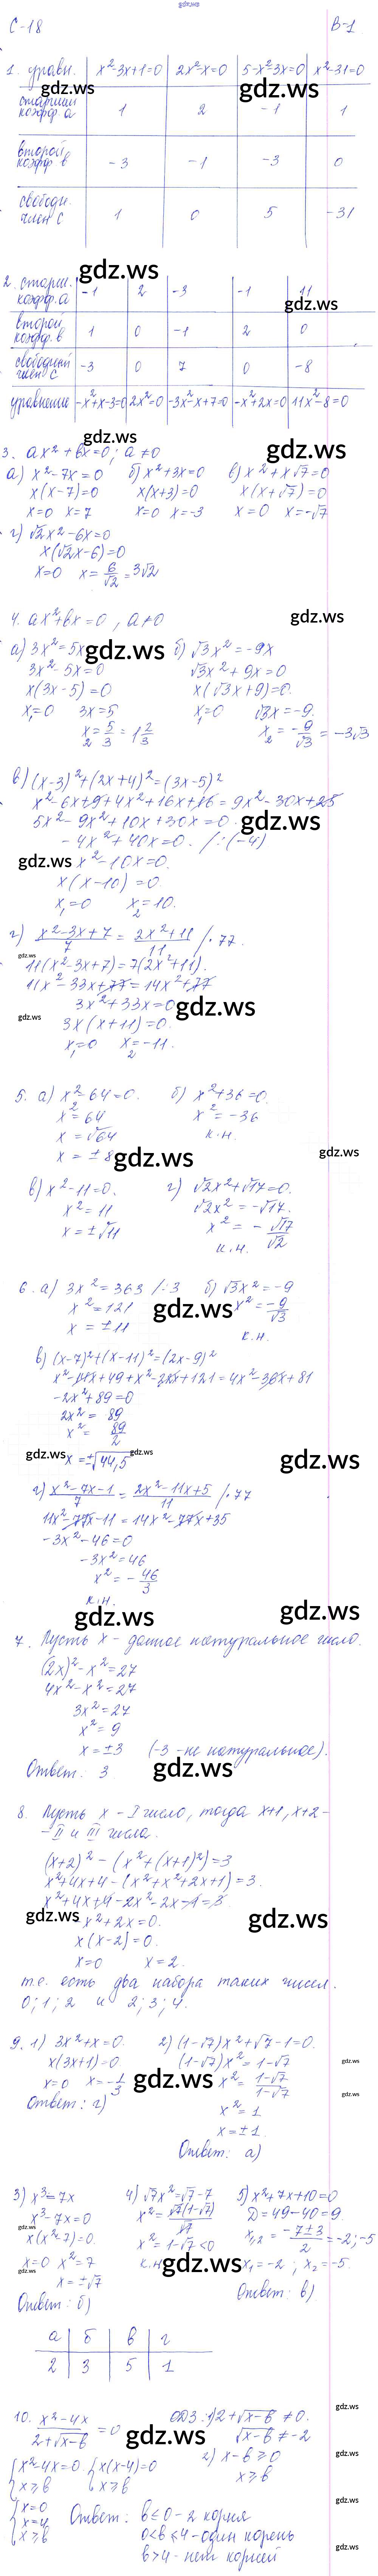 gdz.ws
С-18 В-1
1. уравн. x²-3x+1=0 2x²-x=0 5-x²-3x=0 x²-31=0
gdz.ws gdz.ws
старший коэфф a 1 2 -1 1
второй коэфф b -3 -1 -3 0
свободн. член c 1 0 5 -31
gdz.ws
2. старш. коэфф. a -1 2 -3 -1 11
gdz.ws
второй коэфф. b 1 0 -1 2 0
свободный член c -3 0 7 0 -8
уравнение -x²+x-3=0 2x²=0 -3x²-x+7=0 -x²+2x=0 11x²-8=0
gdz.ws
3. ax²+bx=0; a≠0
gdz.ws
а) x²-7x=0 б) x²+3x=0 в) x²+x√7=0
x(x-7)=0 x(x+3)=0 x(x+√7)=0
x=0 x=7 x=0 x=-3 x=0 x=-√7
г) √2x²-6x=0
x(√2x-6)=0
x=0 x=6/√2=3√2
gdz.ws
4. ax²+bx=0, a≠0
а) 3x²=5x б) √3x²=-9x
gdz.ws
3x²-5x=0 √3x²+9x=0
x(3x-5)=0 x(√3x+9)=0.
x₁=0 3x=5 x₁=0 √3x=-9.
x₂=5/3=1 2/3 x₂=-9/√3=-3√3
в) (x-3)²+(2x+4)²=(3x-5)²
x²-6x+9+4x²+16x+16=9x²-30x+25
5x²-9x²+10x+30x=0
gdz.ws
-4x²+40x=0. /:(-4)
gdz.ws
x²-10x=0.
x(x-10)=0.
x₁=0 x₂=10.
г) (x²-3x+7)/7=(2x²+11)/11 /·77.
gdz.ws
11(x²-3x+7)=7(2x²+11).
11x²-33x+77=14x²+77
3x²+33x=0
gdz.ws
gdz.ws
3x(x+11)=0.
x₁=0 x₂=-11.
5. а) x²-64=0. б) x²+36=0.
x²=64 x²=-36
x=√64 к.н.
x=±8
gdz.ws
gdz.ws
в) x²-11=0. г) √2x²+√17=0.
x²=11 √2x²=-√17.
x=±√11 x²=-√17/√2
к.н.
6. а) 3x²=363 /:3 б) √3x²=-9
x²=121 x²=-9/√3
gdz.ws
x=±11 к.н.
в) (x-7)²+(x-11)²=(2x-9)²
x²-14x+49+x²-22x+121=4x²-36x+81
-2x²+89=0
2x²=89
x²=89/2
gdz.ws gdz.ws
x=±√44,5
gdz.ws
г) (x²-7x-1)/7=(2x²-11x+5)/11 /·77
11x²-77x-11=14x²-77x+35
-3x²-46=0
-3x²=46
x²=-46/3
к.н.
gdz.ws gdz.ws
7. Пусть x - данное натуральное число.
(2x)²-x²=27
4x²-x²=27
3x²=27
x²=9
x=±3 (-3 - не натуральное).
Ответ: 3.
gdz.ws
8. Пусть x - I число, тогда x+1, x+2 -
- II и III числа.
(x+2)²-(x²+(x+1)²)=3
x²+4x+4-(x²+x²+2x+1)=3.
x²+4x+4-2x²-2x-1=3.
gdz.ws gdz.ws
-x²+2x=0.
x(x-2)=0.
x=0 x=2.
т.е. есть два набора таких чисел.
0; 1; 2 и 2; 3; 4.
9. 1) 3x²+x=0. 2) (1-√7)x²+√7-1=0.
x(3x+1)=0 (1-√7)x²=1-√7
gdz.ws
x=0 x=-1/3 x²=(1-√7)/(1-√7)
gdz.ws
gdz.ws
Ответ: г) x²=1
x=±1.
Ответ: а)
3) x³=7x 4) √7x²=√7-7 5) x²+7x+10=0
x³-7x=0 x²=√7(1-√7)/√7 D=49-40=9.
gdz.ws
x(x²-7)=0. x²=1-√7<0 x₁,₂=(-7±3)/2=-2;-5
x=0 x²=7 к.н. x₁=-2; x₂=-5
gdz.ws
gdz.ws
x=±√7 Ответ: в)
Ответ: б)
а б в г
2 3 5 1
gdz.ws
10. (x²-4x)/(2+√(x-b))=0 ОДЗ: 1) 2+√(x-b)≠0.
gdz.ws
√(x-b)≠-2
gdz.ws
2) x-b≥0
x²-4x=0 x(x-4)=0 x≥b
x≥b x≥b
gdz.ws
x=0 Ответ: b≤0 - 2 корня
x=4 0<b≤4 - один корень
x≥b b>4 - нет корней
gdz.ws